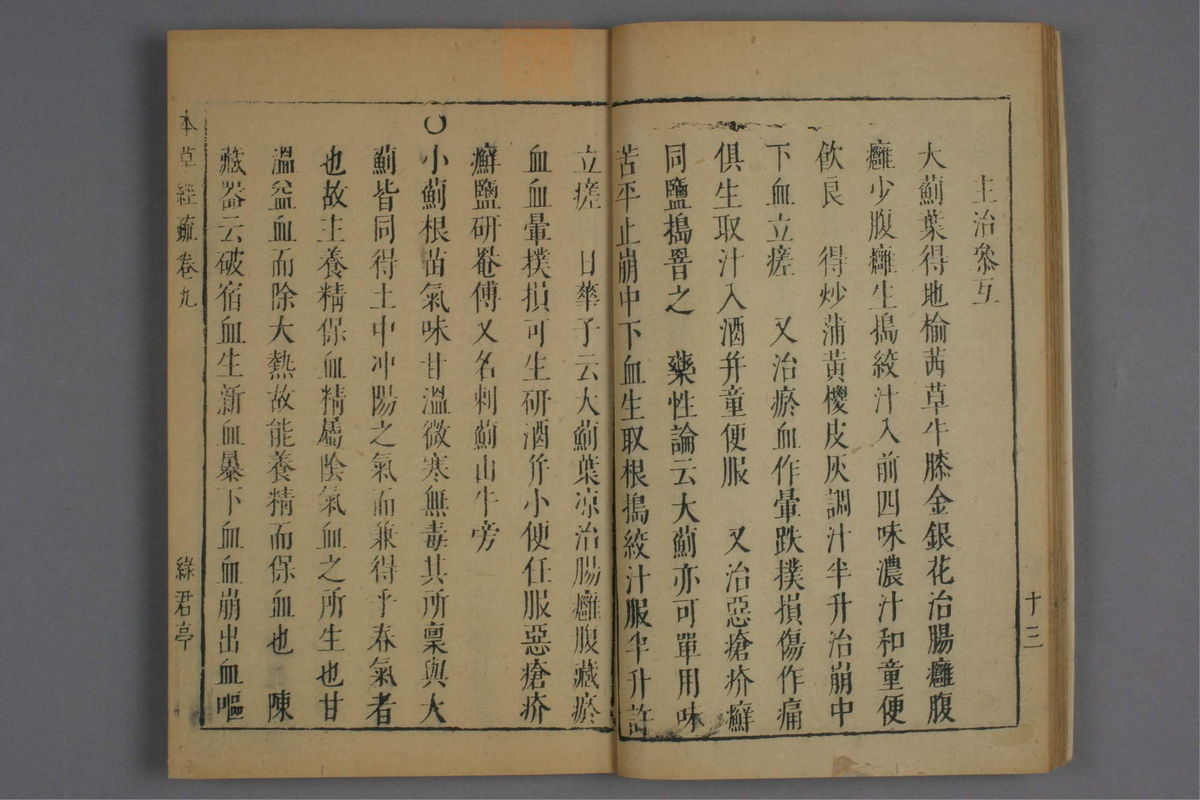 十三
主治參互
大薊葉得地榆茜草牛膝金銀花治腸癰腹
癰少腹癰生搗絞汁入前四味濃汁和童便
飲良　得炒蒲黃椶皮灰調汁半升治崩中
下血立瘥　又治瘀血作暈跌撲損傷作痛
俱生取汁入酒并童便服　又治惡瘡疥癬
同鹽搗罯之　藥性論云大薊亦可單用味
苦平止崩中下血生取根搗絞汁服半升許
立瘥　日華子云大薊葉凉治腸癰腹藏瘀
血血暈撲損可生研酒并小便任服惡瘡疥
癬鹽研罨傅又名刺薊山牛旁
○小薊根苗氣味甘溫微寒無毒其所稟與大
薊皆同得土中冲陽之氣而兼得乎春氣者
也故主養精保血精屬陰氣血之所生也甘
溫益血而除大熱故能養精而保血也　陳
藏器云破宿血生新血暴下血血崩出血嘔
本草經疏卷九　綠君亭